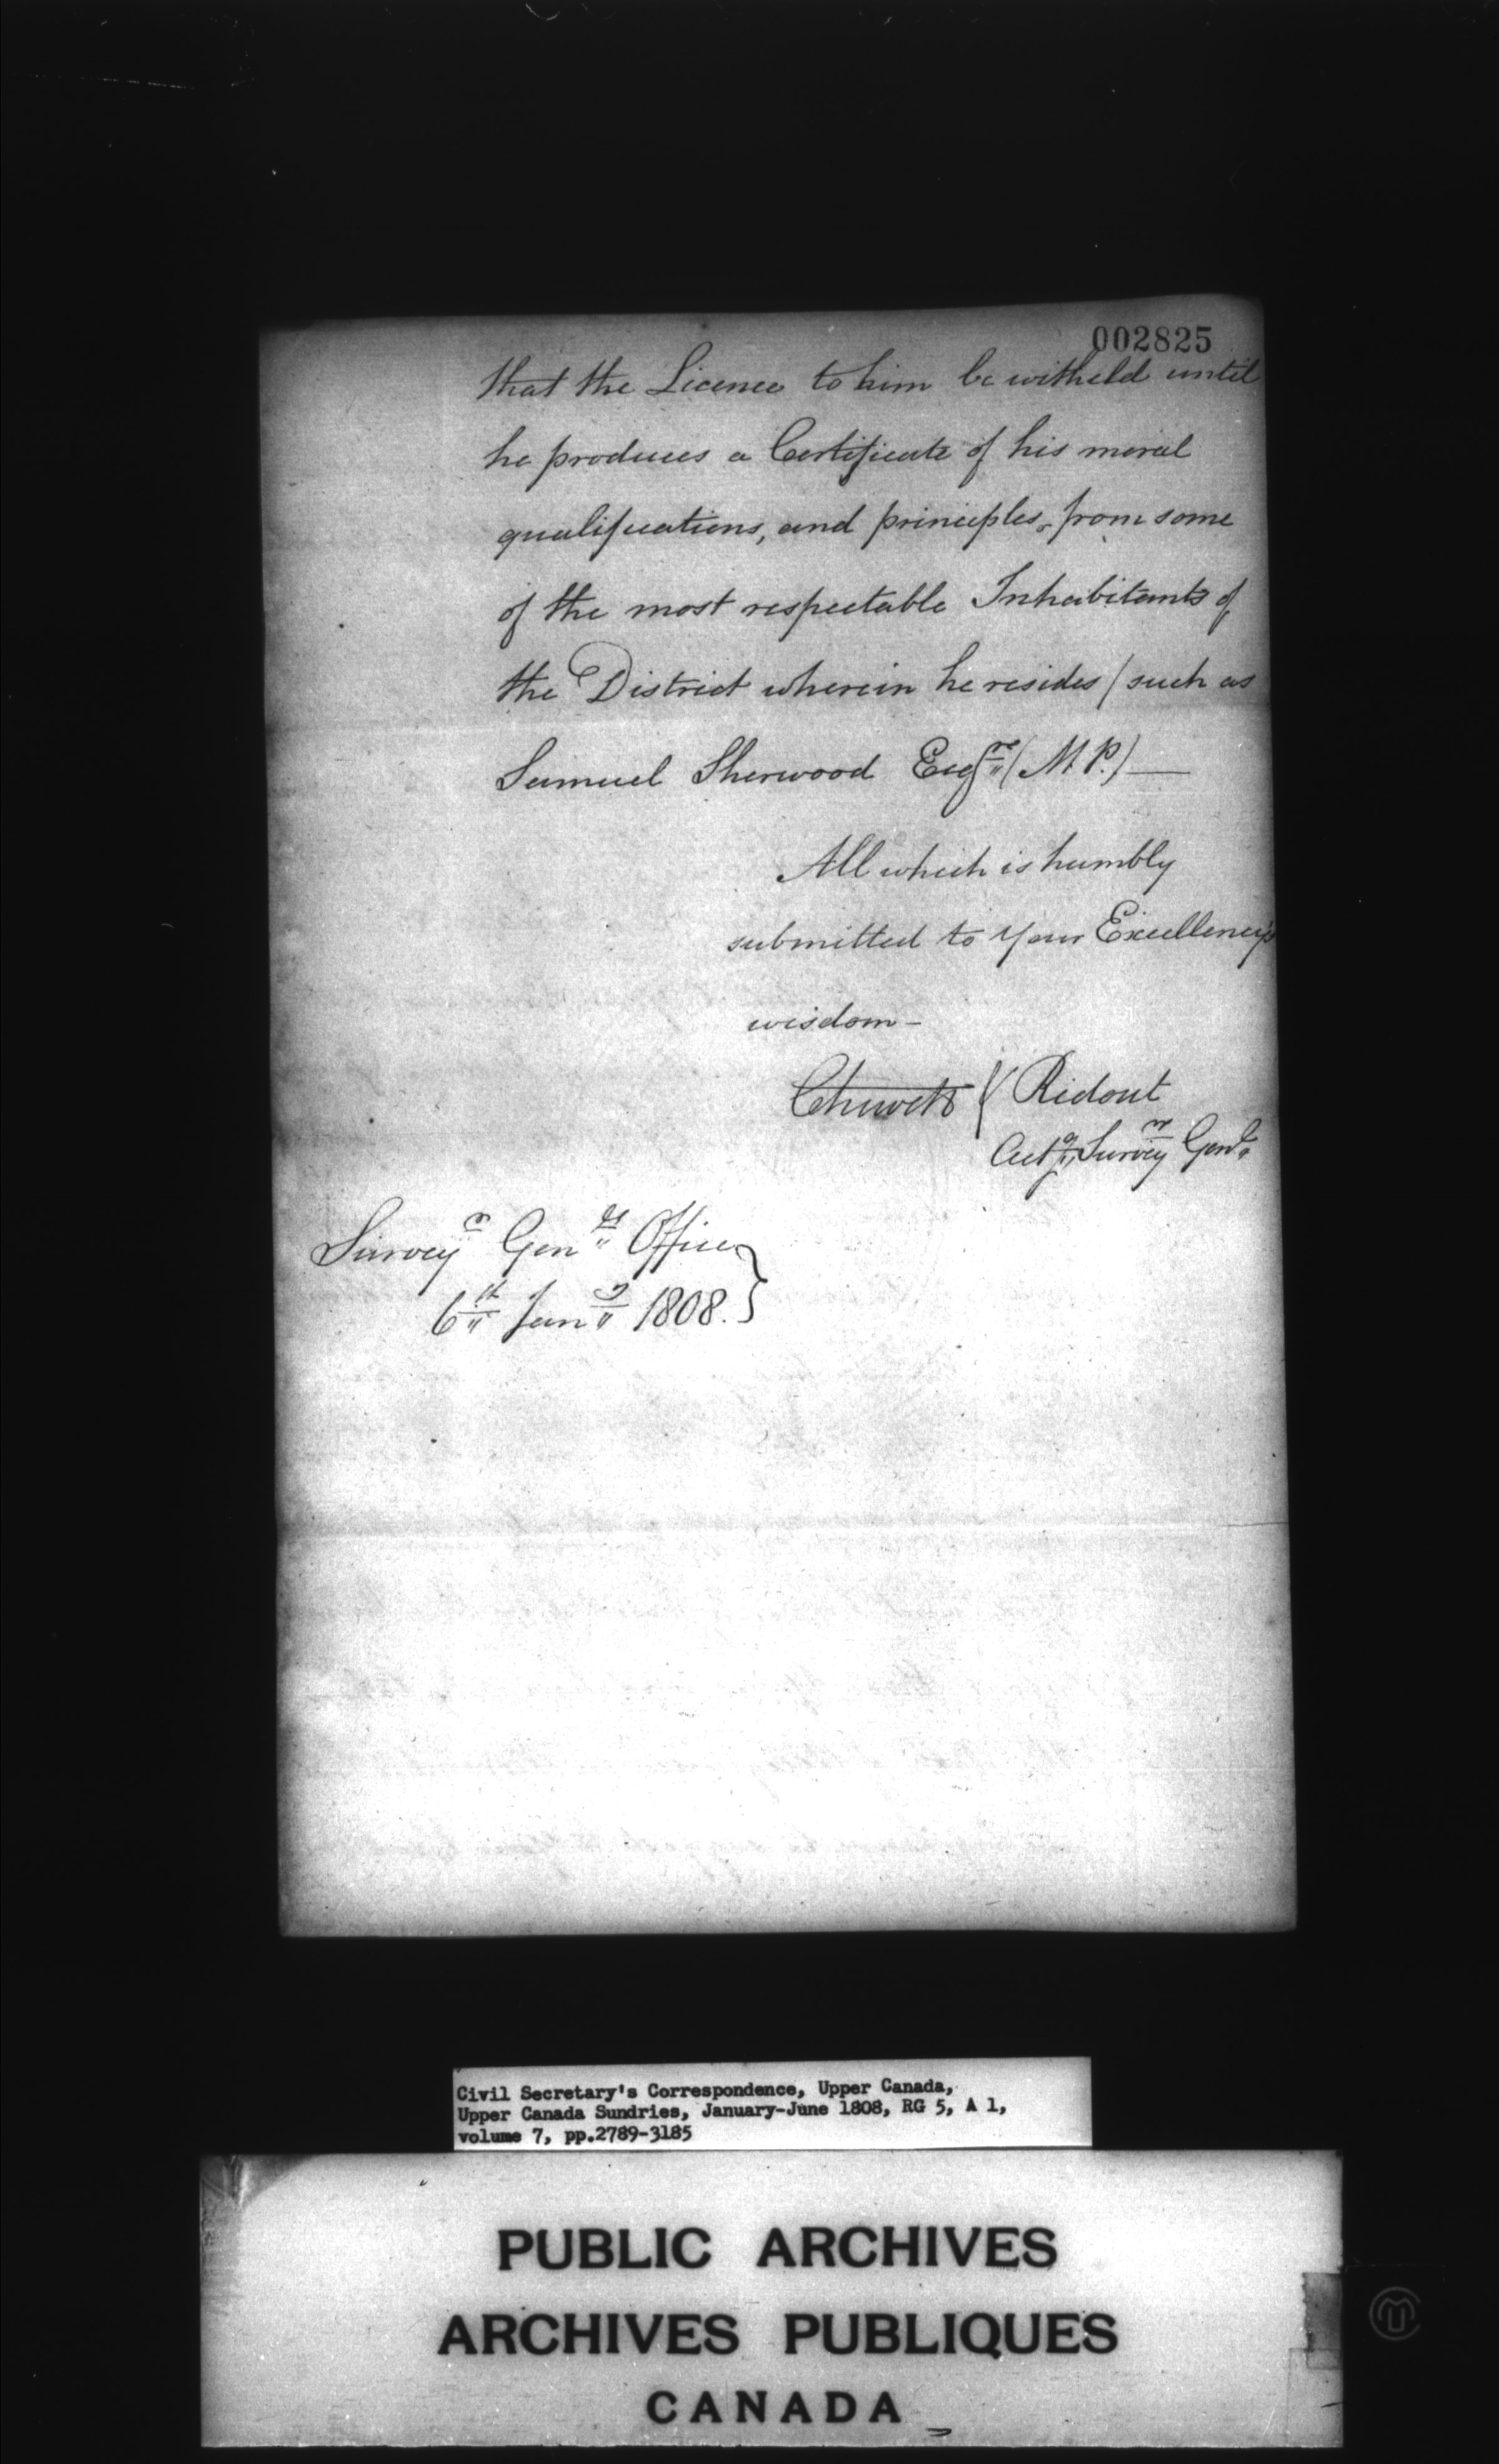 002825
that the Licence to him be witheld until
he produces a Certificate of his moral
qualifications, and principles, from some
of the most respectable Inhabitants of
the District wherein he resides / such as
Samuel Sherwood Esqre (M.P.) —
All which is humbly
submitted to Your Excellency's
wisdom –
Chewett & Ridout
Actg. Surveyr Genl.
Surveyr Genls Office
6th Jany 1808. }
Civil Secretary's Correspondence, Upper Canada,
Upper Canada Sundries, January-June 1808, RG 5, A 1,
volume 7, pp.2789-3185
PUBLIC ARCHIVES
ARCHIVES PUBLIQUES
CANADA